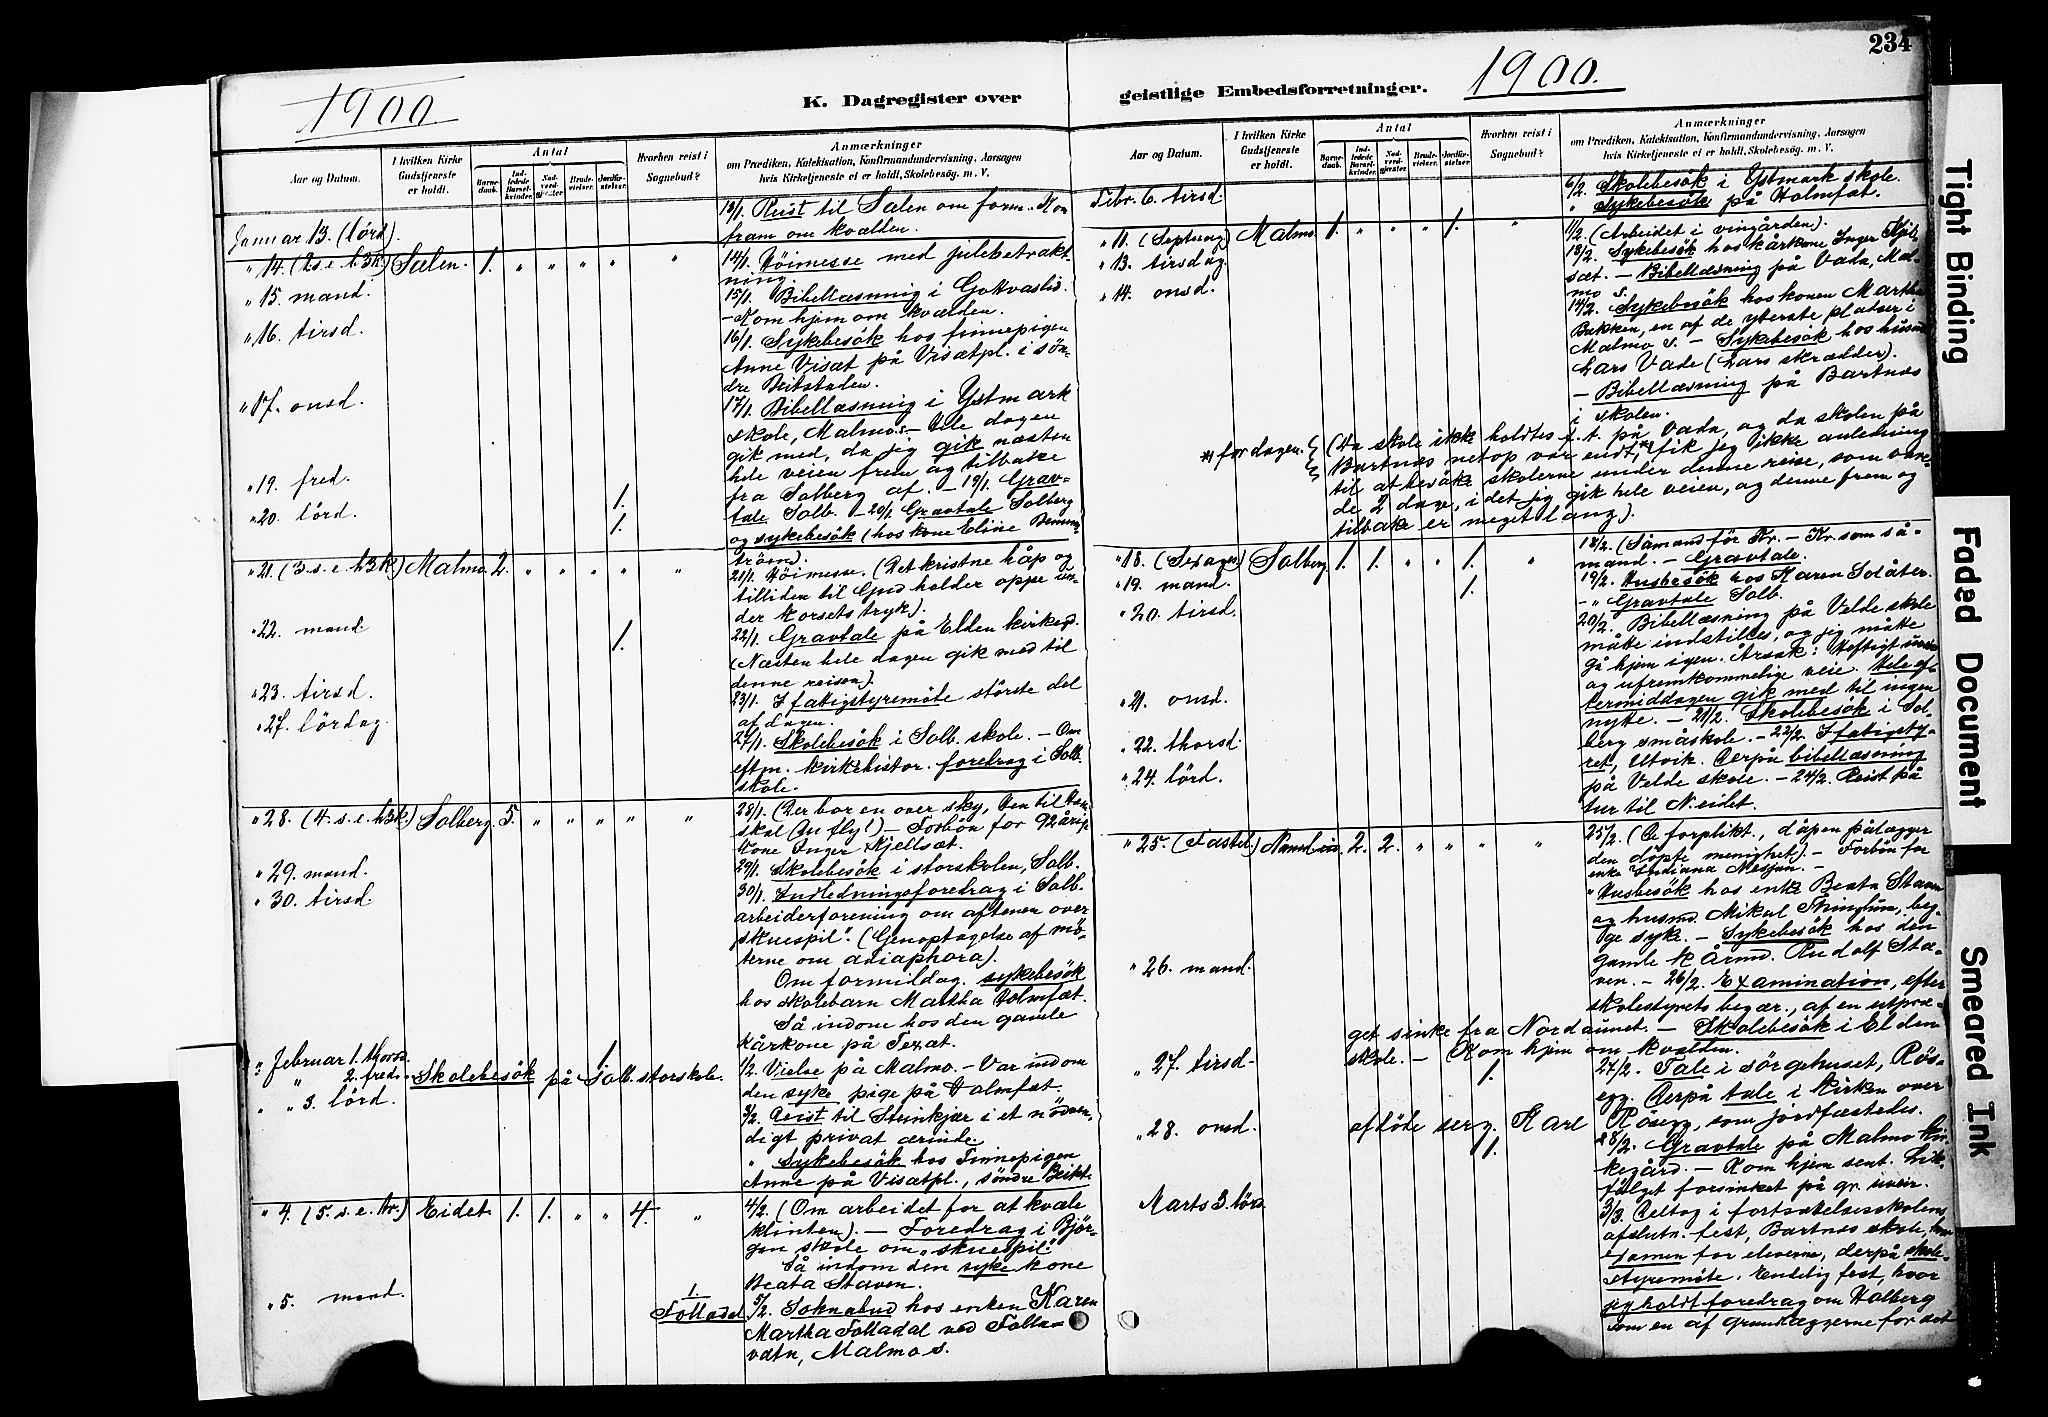 234
1900
K. Dagregister over
geistlige Embedsforretninger.
1900.
Aar og Datum.
I hvilken Kirke Gudstjeneste er holdt.
Antal
Barnedaab.
Indledede Barselkvinder.
Nadverdgjester
Brudevielser.
Jordfæstelser.
Hvorhen reist i Sognebud?
Anmærkninger
om Prædiken, Katekisation, Konfirmandundervisning, Aarsagen
hvis Kirketjeneste ei er holdt, Skolebesøg. m. V.
Januar 13. (lörd).
13/1. Reist til Sælen om form. Kom
fram om kvælden.
" 14. (2 s. e. h3k.) Sælen. 1. " " " " "
14/1. Höimesse med julebetrakt-
ning.
" 15. mand.
15/1. Bibellæsning i Gottvaslid.
- Kom hjem om kvælden.
" 16. tirsd.
16/1. Sykebesök hos finnepigen
Anne Visæt på Visætpl. i sön-
dre Beitstaden.
" 17. onsd.
17/1. Bibellæsning i Ystmark
skole, Malmo s. - Hele dagen
gik med, da jeg gik næsten
hele veien frem og tilbake
" 19. fred.
fra Solberg af. - 19/1. Grav-
1.
" 20. lörd.
tale Solb. - 20/1 Gravtale Solberg
1.
og sykebesök (hos kone Eline
" 21. (3 s. e. h3k) Malmo 2. " " " " "
21/1. Höimesse. (Det kristne håp og
tilliden til Gud holder oppe un-
der korsets tryk).
" 22. mand
1.
22/1. Gravtale på Elden kirkegd.
(Næsten hele dagen gik med til
denne reisen).
" 23. tirsd.
23/1. I fattigstyremöte störste del
af dagen.
" 27. lördag.
27/1. Skolebesök i Solb. skole. - Om
eftm. kirkehistor. foredrag i Solb.
skole.
" 28. (4. s. e. h3k.) Solberg. 5. " " " " "
28/1. (Der bor en over sky, Den til
skal du fly!) - Forbön for 92årige
kone Inger Kjellsæt.
" 29. mand.
29/1. Skolebesök i storskolen, Solb.
" 30. tirsd.
30/1. Indledningsforedrag i Solb.
arbeiderforening om aftenen over
"skuespil". (Genoptagelse af mö-
terne om adiaphora).
Om formiddag. sykebesök
hos skolebarn Martha Holmfæt.
Så indom hos den gamle
kårkone på Texat.
" Februar 1. thorsd.
1.
1/2. Vielse på Malmo. - Var indom
den syke pige på Holmfæt.
" " 2. fred. Skolebesök på Solb. storskole.
" " 3. lörd.
3/2. Reist til Steinkjær i et nödven-
digt privat ærinde.
" Sykebesök hos Finnepigen
Anne på Visætpl., söndre Beitst.
" 4. (5. s. e. h3.) Eidet 1. 1. " " 4. "
4/2. (Om arbeidet for at kvæle
klinten). - Foredrag i Björ-
gen skole om "skuespil".
Så indom den syke kone
Beata Staven.
" 5. mand.
1.
Folladal.
5/2. Soknabud hos enken Karen
Martha Folladal ved Folla-
vatn, Malmo s.
Aar og Datum.
I hvilken Kirke Gudstjeneste er holdt.
Antal
Barnedaab.
Indledede Barselkvinder.
Nadverdgjester
Brudevielser.
Jordfæstelser.
Hvorhen reist i Sognebud?
Anmærkninger
om Prædiken, Katekisation, Konfirmandundervisning, Aarsagen
hvis Kirketjeneste ei er holdt, Skolebesøg. m. V.
Febr. 6. tirsd.
6/2. Skolebesök i Ystmark skole.
" Sykebesök på Holmfæt.
" 11. (Septuag) Malmo. 1. " " " 1. "
11/2. (Arbeidet i vingården).
" 13. tirsdag.
13/2. Sykebesök hos kårkone Inger Kjel-
sæt. - Bibellæsning på Vada, Mal-
mo s.
" 14. onsd.
14/2. Sykebesök hos konen Martha
Bakken, en af de yterste pladser i
Malmo s. - Sykebesök hos husmd
Lars Vade (Lars skrædder).
- Bibellæsning på Bartnes
i skolen.
* for dagen.
(Da skole ikke holdtes f. t. på Vada, og da skolen på
Bartnæs netop var endt,* fik jeg ikke anledning
til at besöke skolerne under denne reise, som vare-
de 2 dage, idet jeg gik hele veien, og denne frem og
tilbake er meget lang).
" 18. (Sexages) Solberg 1. 1. " " 1. "
18/2. (Såmand för Kr. - Kr. som så-
mand. - Gravtale.
" 19. mand.
1.
19/2. Husbesök hos Karen Solåter.
- " Gravtale Solb.
" 20. tirsd.
20/2. Bibellæsning på Velde skole
måtte indstilles, og jeg måtte
gå hjem igen. Årsak: Heftigt uveir
og ufremkommelige veie. Hele ef-
termiddagen gik med til ingen
" 21. onsd.
nytte. - 21/2. Skolebesök i Sol-
berg småskole. - 22/2. I fattigsty-
" 22. thorsd.
ret, Utvik. Derpå bibellæsning
" 24. lörd.
på Velde skole. - 24/2. Reist på
tur til N. eidet.
" 25. (Fastel.) 2. 2. " " " "
25/2. (De forplikt., dåpen pålægger
den döpte menighet). - Forbön for
enke Indianna
" Husbesök hos enke Beata Staven
og husmd. Mikal beg-
ge syke. - Sykebesök hos den
gamle kårmd. Rudolf Sta-
" 26. mand.
ven. - 26/2. Examination, efter
skolestyrets begær., af en utpræ-
get sinke fra Nordaunet. - Skolebesök i Elden
skole. - Kom hjem om kvælden.
" 27. tirsd.
1.
27/2. Tale i sörgehuset, Rös-
egg. Derpå tale i kirken over
afdöde serg. Karl Rösegg, som jordfæstedes.
" 28. onsd.
1.
28/2. Gravtale på Malmo kir-
kegård. - Kom hjem sent. Lik-
fölget forsinket på gr. uveir.
Marts 3. lörd.
3/3. Deltog i fortsættelsesskolens
afslutn. fest, Bartnæs skole,
examen for eleverne, derpå skole-
styremöte. Endelig fest, hvor
jeg holdt foredrag om Holberg
som en af grundlæggerne for det
Tight Binding
Faded Document
Smeared Ink